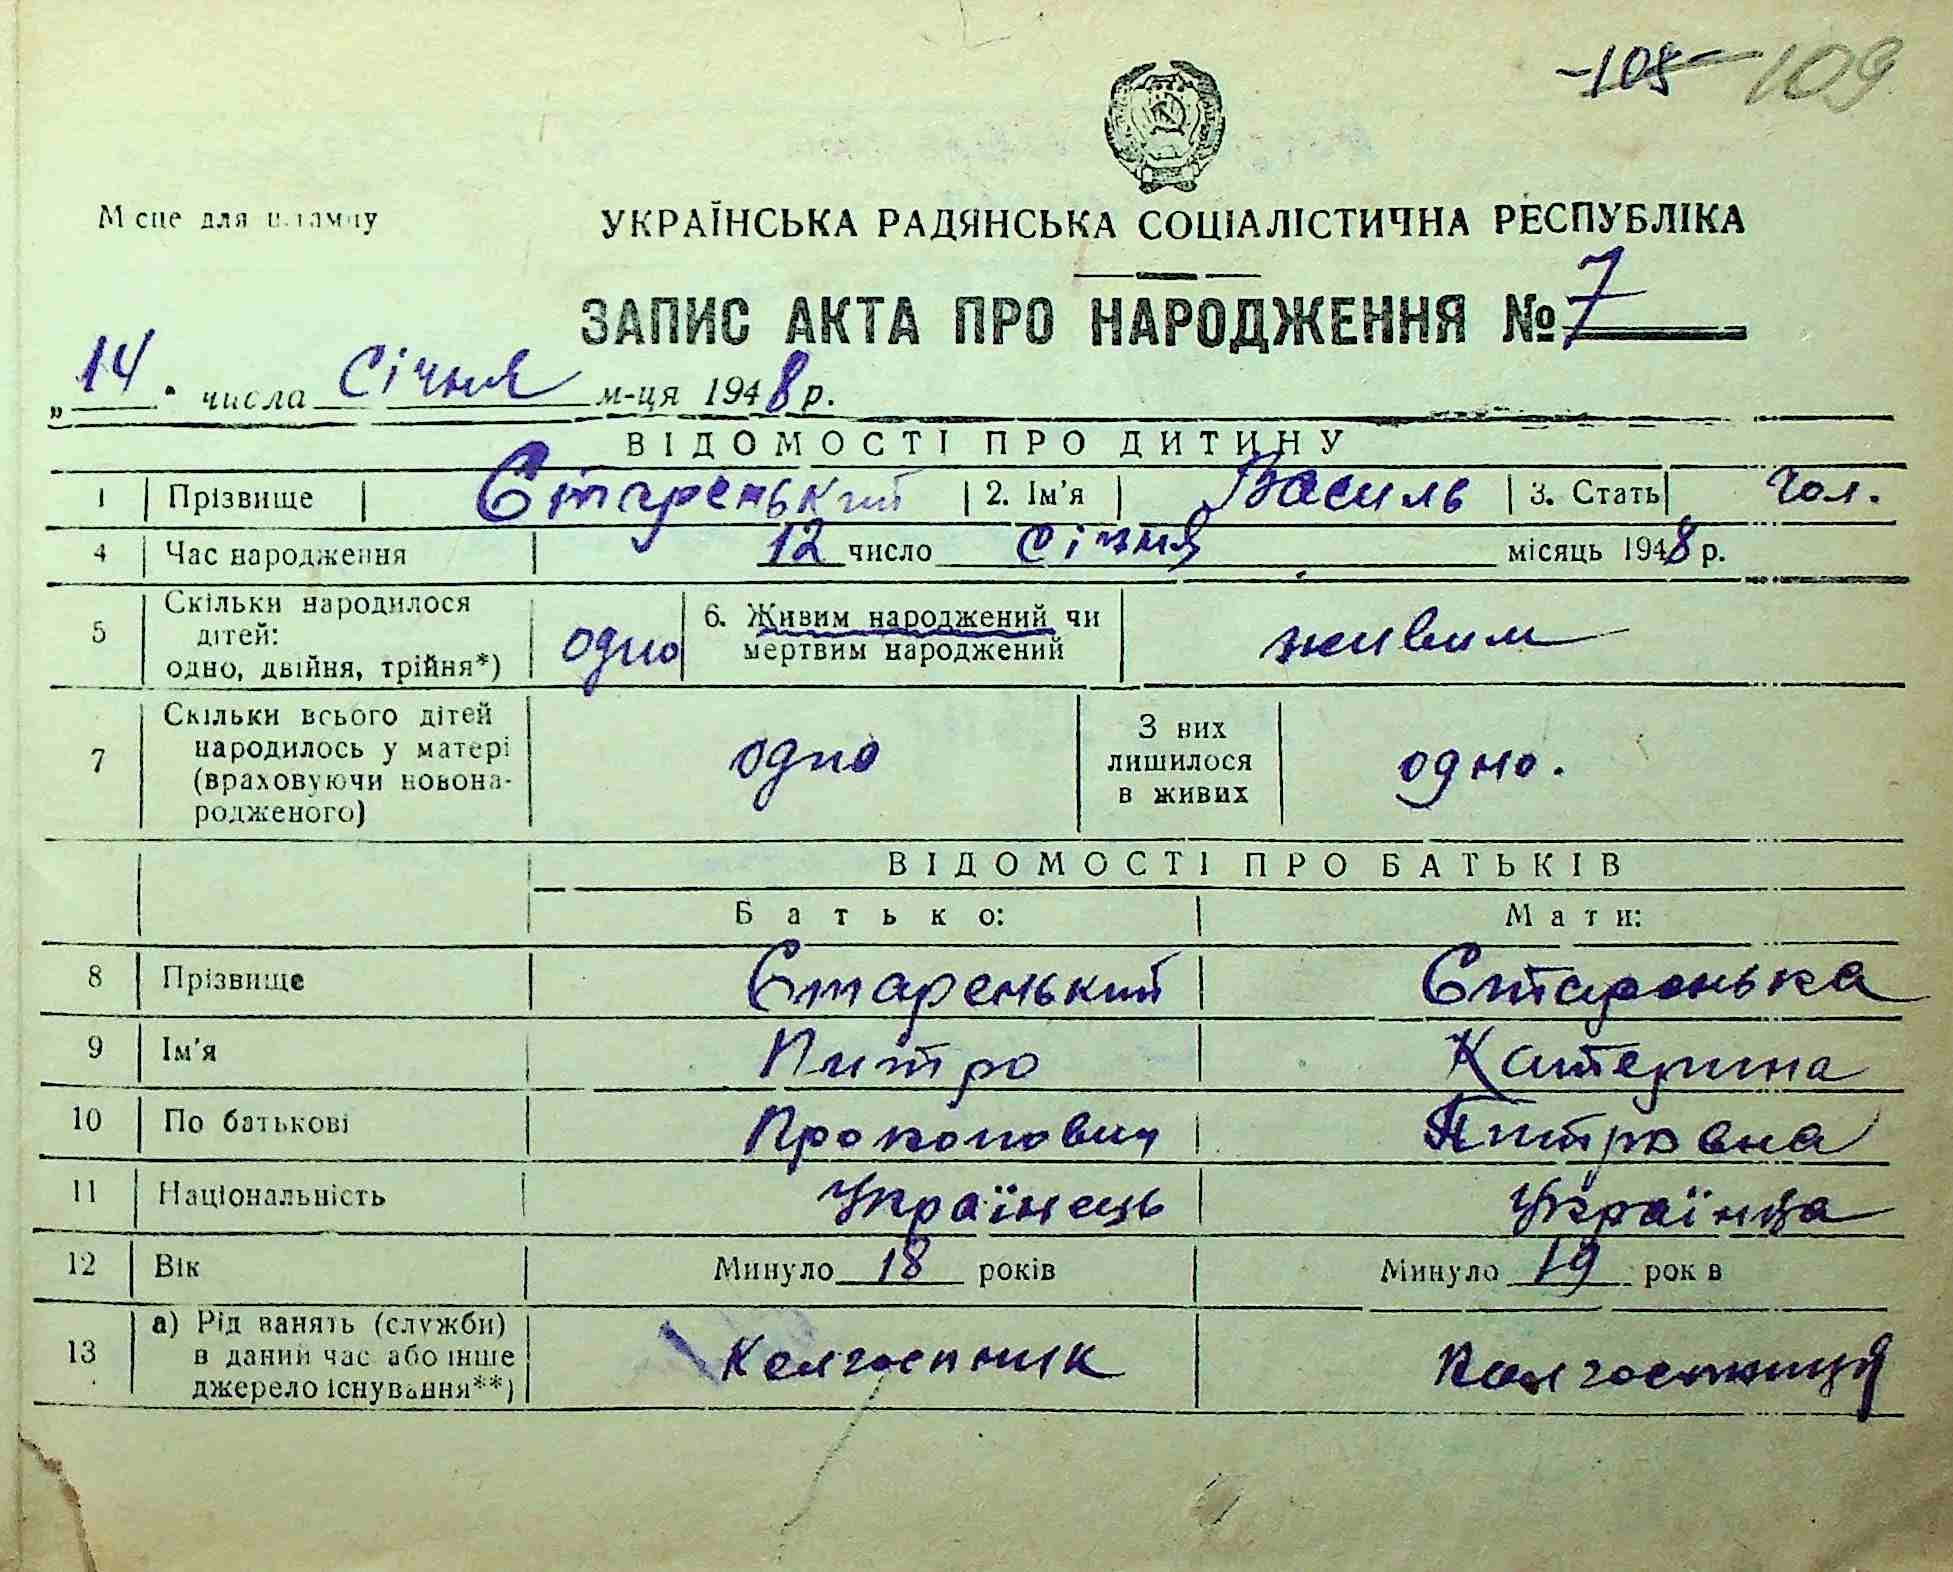 -108- 109
Місце для штампу
УКРАЇНСЬКА РАДЯНСЬКА СОЦІАЛІСТИЧНА РЕСПУБЛІКА
ЗАПИС АКТА ПРО НАРОДЖЕННЯ № 7
„14" числа Січня м-ця 1948 р.
ВІДОМОСТІ ПРО ДИТИНУ
1 Прізвище Старенький 2. Ім'я Василь 3. Стать Чол.
4 Час народження 12 число Січня місяць 1948 р.
5 Скільки народилося дітей: одно, двійня, трійня*) одно 6. Живим народжений чи мертвим народжений живим
7 Скільки всього дітей народилось у матері (враховуючи новонародженого) одно З них лишилося в живих одно.
ВІДОМОСТІ ПРО БАТЬКІВ
Батько: Мати:
8 Прізвище Старенький Старенька
9 Ім'я Питро Катерина
10 По батькові Прокопович Питровна
11 Національність Українець Українца
12 Вік Минуло 18 років Минуло 19 років
13 а) Рід занять (служби) в даний час або інше джерело існування**) Колгоспник Колгоспниця